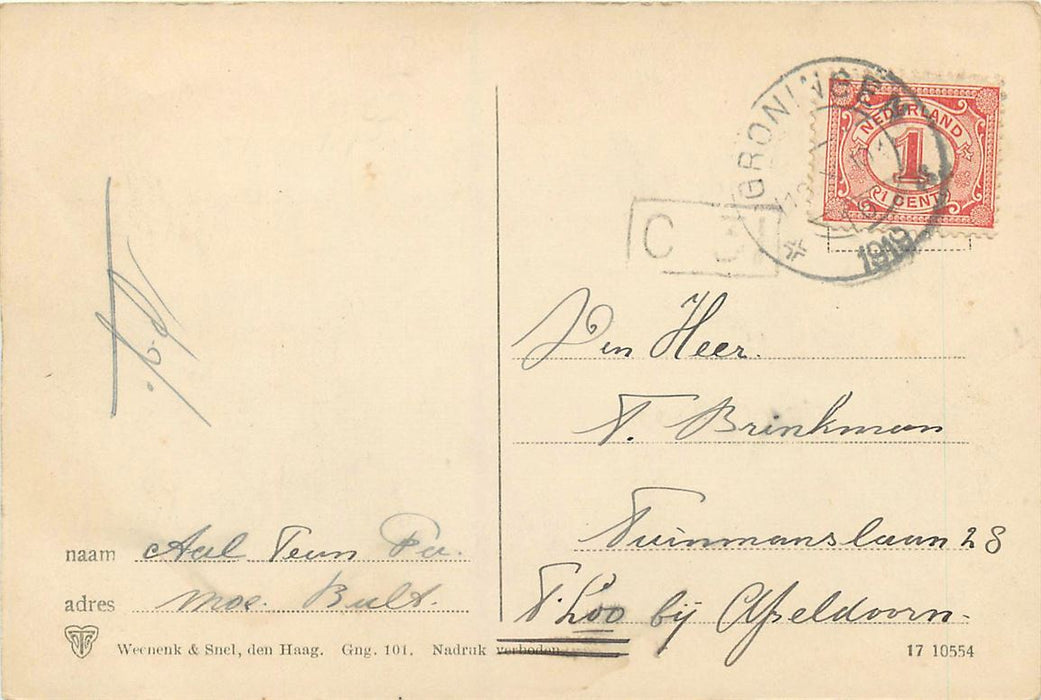 GRONINGEN
1919
NEDERLAND
1
1 CENT
C
Den Heer.
T. Brinkman
Tuinmanslaan 28
T. Loo bij Apeldoorn.
naam Aal Teun Pa.
adres Moe. Bult.
Weenenk & Snel, den Haag. Gng. 101. Nadruk verboden
17 10554